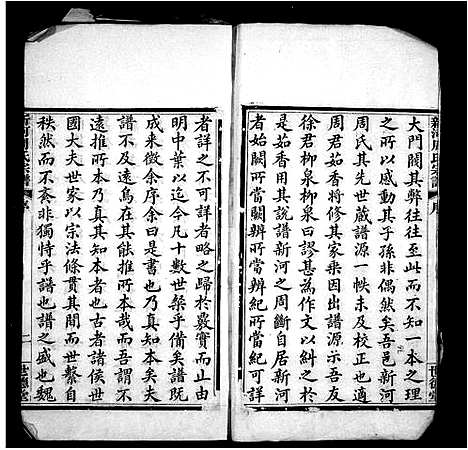 大門闊其弊往往至此而不知一本之理
所以感動其子孫非偶然矣吾邑新河
周氏其先世蔵譜源一帙未及校正也適
周君茹香將修其家乗因出譜源示吾友
徐君柳泉柳泉曰謬甚為作文以糾之於
是茹香用其説譜新河之周斷自居新河
者始闕所當闕辨所當辨紀所當紀可詳
者詳之不可詳者略之歸於覈實而止由
明中葉以迄今凡十數世粲乎備矣譜既
成来徵余序余曰是書也乃真知本矣夫
譜不及遠烏在其能推所本哉而吾謂不
遠推所本乃真其知本者也古者諸侯世
國大夫世家以宗法條貫其間而世繫自
秩然而不紊非獨恃乎譜也譜之盛也魏
新河周氏宗譜
序
一
世德堂